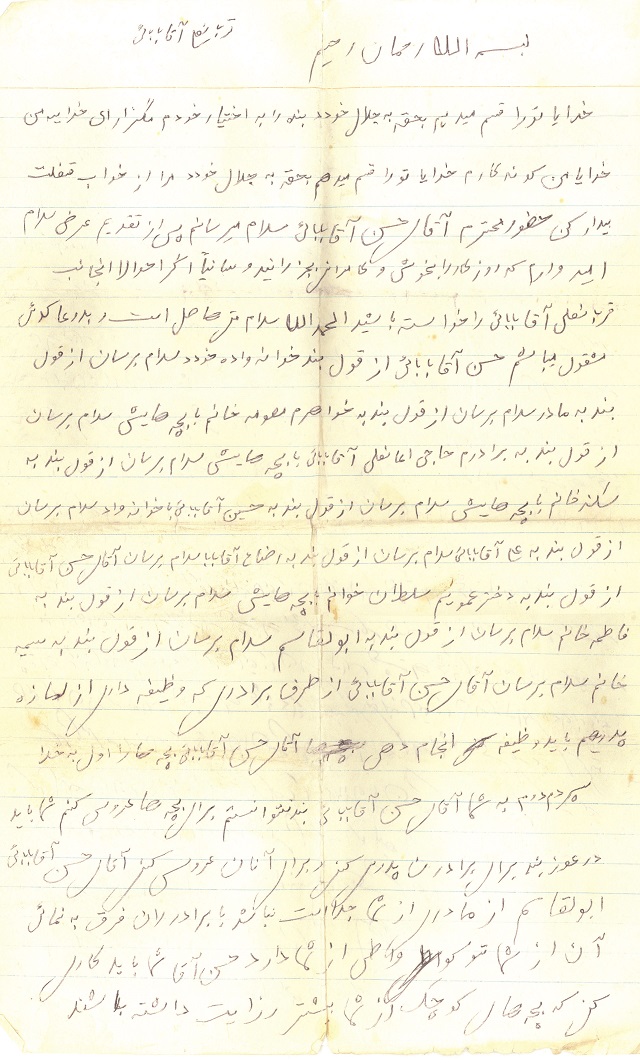 قربانعلی آقابابائی
بسه اللله رحمان رحیم
خدایا تورا قسم میدیم بحقه به جلال خودد بنده را به اختیار خودم مگزار ای خدایه من
خدایا من کو نه کارم خدایا تو را قسم میدهم بحقه به جلال خودد مرا از خواب قفلت
بیدار کن حضور محترم آقای حسن آقابابائی سلام میرسانم پس از تقدیم عرض سلام
امید وارم که روز گار را بخوشی و کامرانی بگزرانید و سانیآ اگر احوالا اینجانب
قربانعلی آقابابائی را خواسته باشید الحمد اللله سلامتی حاصل است و بدو عا گوئی
مشقول میباشم حسن آقابابائی از قول بند خوانه واده خودد سلام برسان از قول
بند به مادر سلام برسان از قول بند به خواهرم معصومه خانم با بچه هایش سلام برسان
از قول بند به برادرم حاجی اما نعلی آقابابائی با بچه هایش سلام برسان از قول بند به
سکنه خانم با بچه هایش سلام برسان از قول بند به حسین آقابابائی با خوانه واد سلام برسان
از قول بند به علی آقابابائی سلام برسان از قول بند به رضا آقابابا سلام برسان آقای حسن آقابابائی
از قول بند به دختر عمویم سلطان خوانم با بچه هایش سلام برسان از قول بند به
فاطمه خانم سلام برسان از قول بند به ابولقاسم سلام برسان از قول بند به سمیه
خانم سلام برسان آقای حسن آقابابائی از طرف برادری که وظیفه داری از
پدریهم باید وظیفه انجام دهی آقای حسن آقابابائی بچه ها را اول به خدا
سپردم دوم به شما آقای حسن آقابابائی بند نتوانستم برای بچه ها عروسی کنم شما باید
در عوز بند برای برادرن پدری کنی و برای آنان عروسی کنی آقای حسن آقابابائی
ابولقاسم از مادری از شما جدا است نباشد با برادرران فرق به نمائی
آن از شما تو کو وکاملی از شما دارد حسن آقا شما باید کاری
کنی که بچه های کوچک از شما بیشتر رزایت داشته باشند